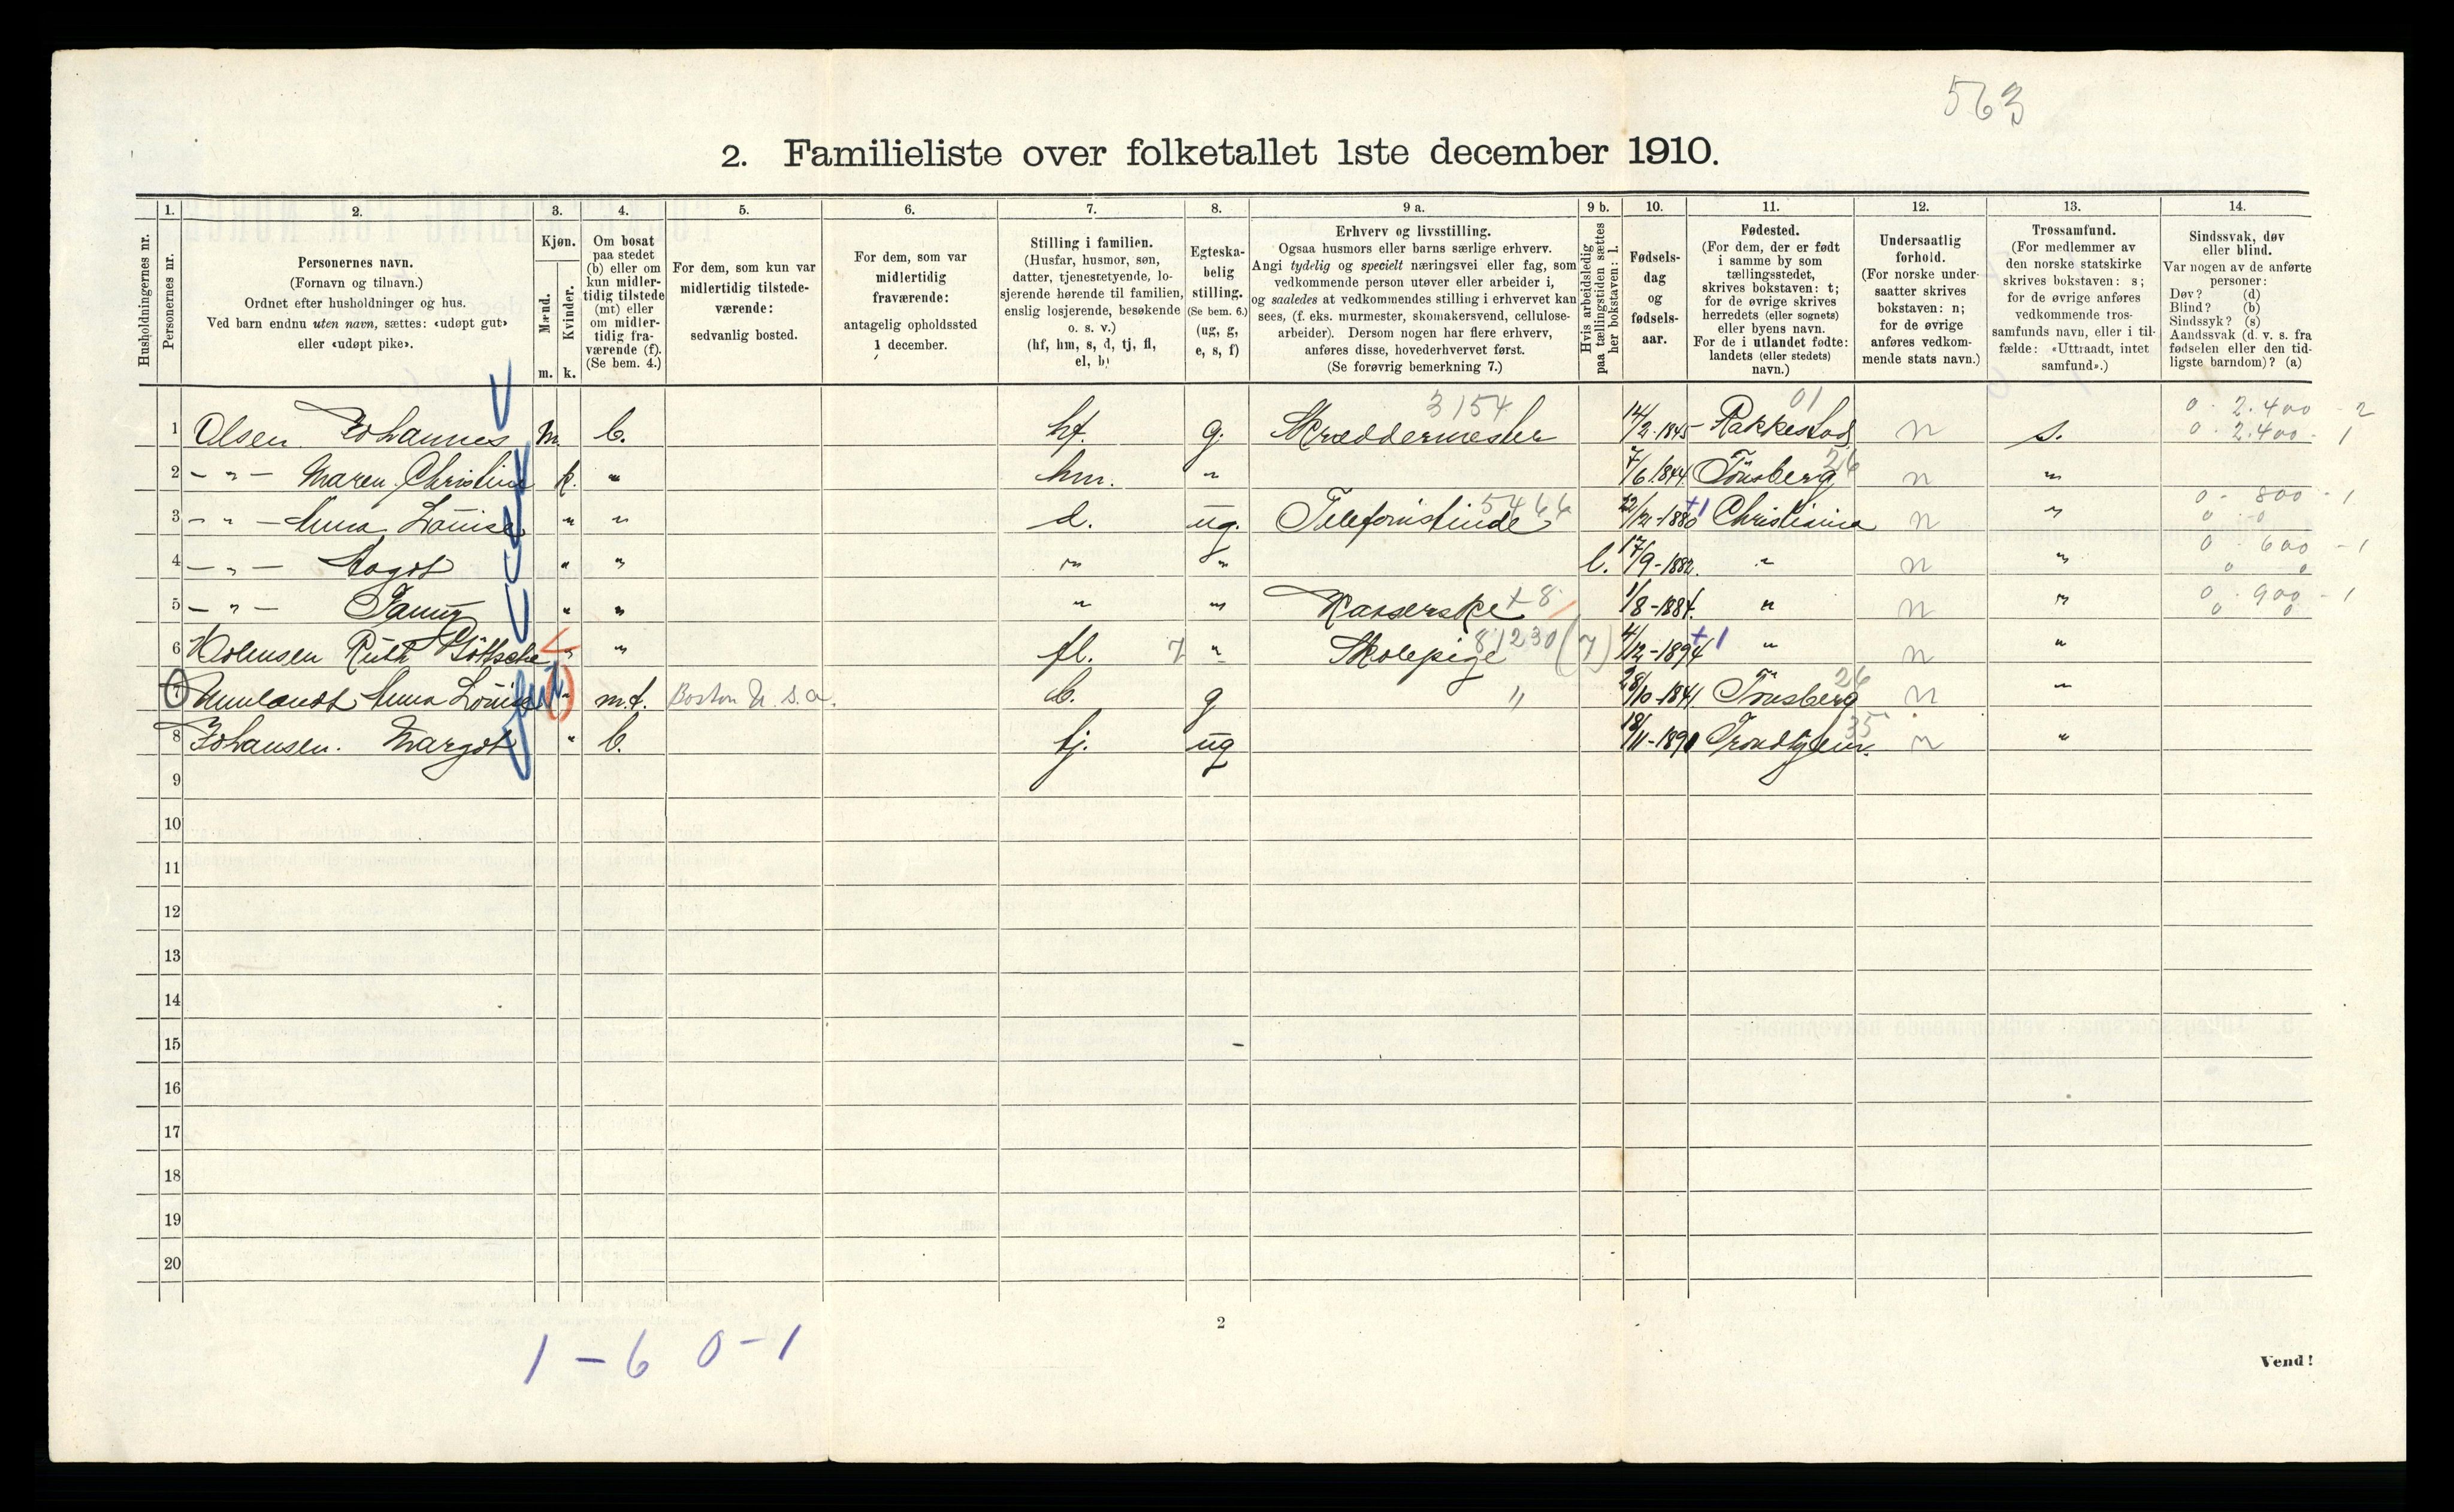 563
2. Familieliste over folketallet 1ste december 1910.
Husholdningernes nr.
1. Personernes nr.
2. Personernes navn.
(Fornavn og tilnavn.)
Ordnet efter husholdninger og hus.
Ved barn endnu uten navn, sættes: «udøpt gut»
eller «udøpt pike».
3. Kjøn.
Mænd. m.
Kvinder. k.
4. Om bosat
paa stedet
(b) eller om
kun midler-
tidig tilstede
(mt) eller
om midler-
tidig fra-
værende (f).
(Se bem. 4.)
5. For dem, som kun var
midlertidig tilstede-
værende:
sedvanlig bosted.
6. For dem, som var
midlertidig
fraværende:
antagelig opholdssted
1 december.
7. Stilling i familien.
(Husfar, husmor, søn,
datter, tjenestetyende, lo-
sjerende hørende til familien,
enslig losjerende, besøkende
o. s. v.)
(hf, hm, s, d, tj, fl,
el, b)
8. Egteska-
belig
stilling.
(Se bem. 6.)
(ug, g,
e, s, f)
9 a. Erhverv og livsstilling.
Ogsaa husmors eller barns særlige erhverv.
Angi tydelig og specielt næringsvei eller fag, som
vedkommende person utøver eller arbeider i,
og saaledes at vedkommendes stilling i erhvervet kan
sees, (f. eks. murmester, skomakersvend, cellulose-
arbeider). Dersom nogen har flere erhverv,
anføres disse, hovederhvervet først.
(Se forøvrig bemerkning 7.)
9 b. Hvis arbeidsledig
paa tællingstiden sættes
her bokstaven: l.
10. Fødsels-
dag
og
fødsels-
aar.
11. Fødested.
(For dem, der er født
i samme by som
tællingsstedet,
skrives bokstaven: t;
for de øvrige skrives
herredets (eller sognets)
eller byens navn.
For de i utlandet fødte:
landets (eller stedets)
navn.)
12. Undersaatlig
forhold.
(For norske under-
saatter skrives
bokstaven: n;
for de øvrige
anføres vedkom-
mende stats navn.)
13. Trossamfund.
(For medlemmer av
den norske statskirke
skrives bokstaven: s;
for de øvrige anføres
vedkommende tros-
samfunds navn, eller i til-
fælde: «Uttraadt, intet
samfund».)
14. Sindssvak, døv
eller blind.
Var nogen av de anførte
personer:
Døv? (d)
Blind? (b)
Sindssyk? (s)
Aandssvak (d. v. s. fra
fødselen eller den tid-
ligste barndom)? (a)
3154 01 0 - 2.400 - 2
1 Olsen Johannes m. b. hf. g. Skræddermester 14/2-1845 Rakkestad n s. 0 - 2.400 - 1
2 - " - Maren Christine k. " hm. " 7/6.1844 Tönsberg 26 n "
3 - " - Anna Louise " " d. ug. Telefonistinde 5466 22/12-1880 +1 Christiania n " 0 - 800 - 1
0 - 0
4 - " - Aagot " " " " l. 17/9-1882. " n " 0 - 600 - 1
0 0
5 - " - Fanny " " " " Kasserske +8 1/8-1884. " n " 0 - 900 - 1
0 0
6 Ruth Göttsche " " fl. 7 " Skolepige 81230 (7) 4/12-1894 +1 " n "
7 Anna Louise " m.t. Boston U.S.a. b. g " 28/10-1841 Tönsberg 26 n "
8 Johansen. Margot " b. tj. ug 18/11-1891 Trondhjem. 35 n "
9
10
11
12
13
14
15
16
17
18
19
20
2
1 - 6 0 - 1
Vend!